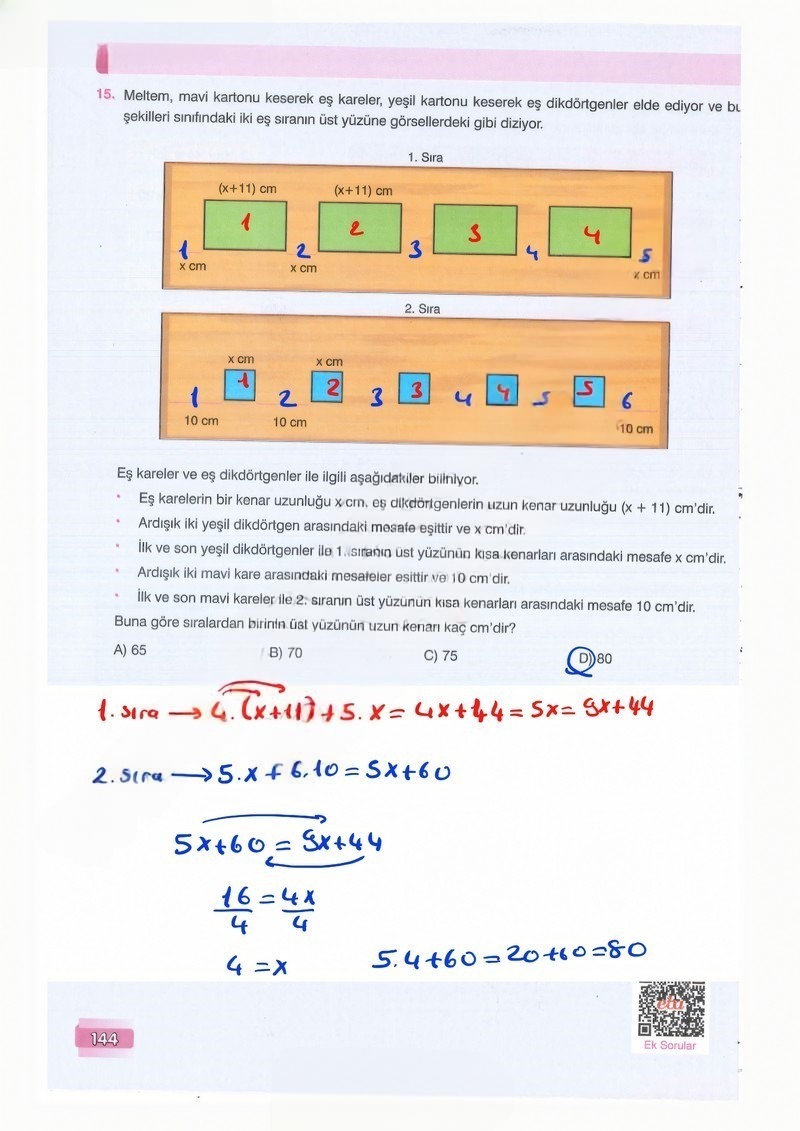 15. Meltem, mavi kartonu keserek eş kareler, yeşil kartonu keserek eş dikdörtgenler elde ediyor ve bu
şekilleri sınıfındaki iki eş sıranın üst yüzüne görsellerdeki gibi diziyor.
1. Sıra
(x+11) cm (x+11) cm
1 2 3 4
1 2 3 4 5
x cm x cm x cm
2. Sıra
x cm x cm
1 2 3 4 5
1 2 3 4 5 6
10 cm 10 cm 10 cm
Eş kareler ve eş dikdörtgenler ile ilgili aşağıdakiler biliniyor.
• Eş karelerin bir kenar uzunluğu x cm, eş dikdörtgenlerin uzun kenar uzunluğu (x + 11) cm'dir.
• Ardışık iki yeşil dikdörtgen arasındaki mesafe eşittir ve x cm'dir.
• İlk ve son yeşil dikdörtgenler ile 1. sıranın üst yüzünün kısa kenarları arasındaki mesafe x cm'dir.
• Ardışık iki mavi kare arasındaki mesafeler eşittir ve 10 cm'dir.
• İlk ve son mavi kareler ile 2. sıranın üst yüzünün kısa kenarları arasındaki mesafe 10 cm'dir.
Buna göre sıralardan birinin üst yüzünün uzun kenarı kaç cm'dir?
A) 65 B) 70 C) 75 D) 80
1. sıra → 4.(x+11)+5.x = 4x+44 = 5x = 9x+44
2. sıra → 5.x+6.10 = 5x+60
5x+60 = 9x+44
16 = 4x
4 4
4 = x 5.4+60 = 20+60 = 80
eta
Ek Sorular
144